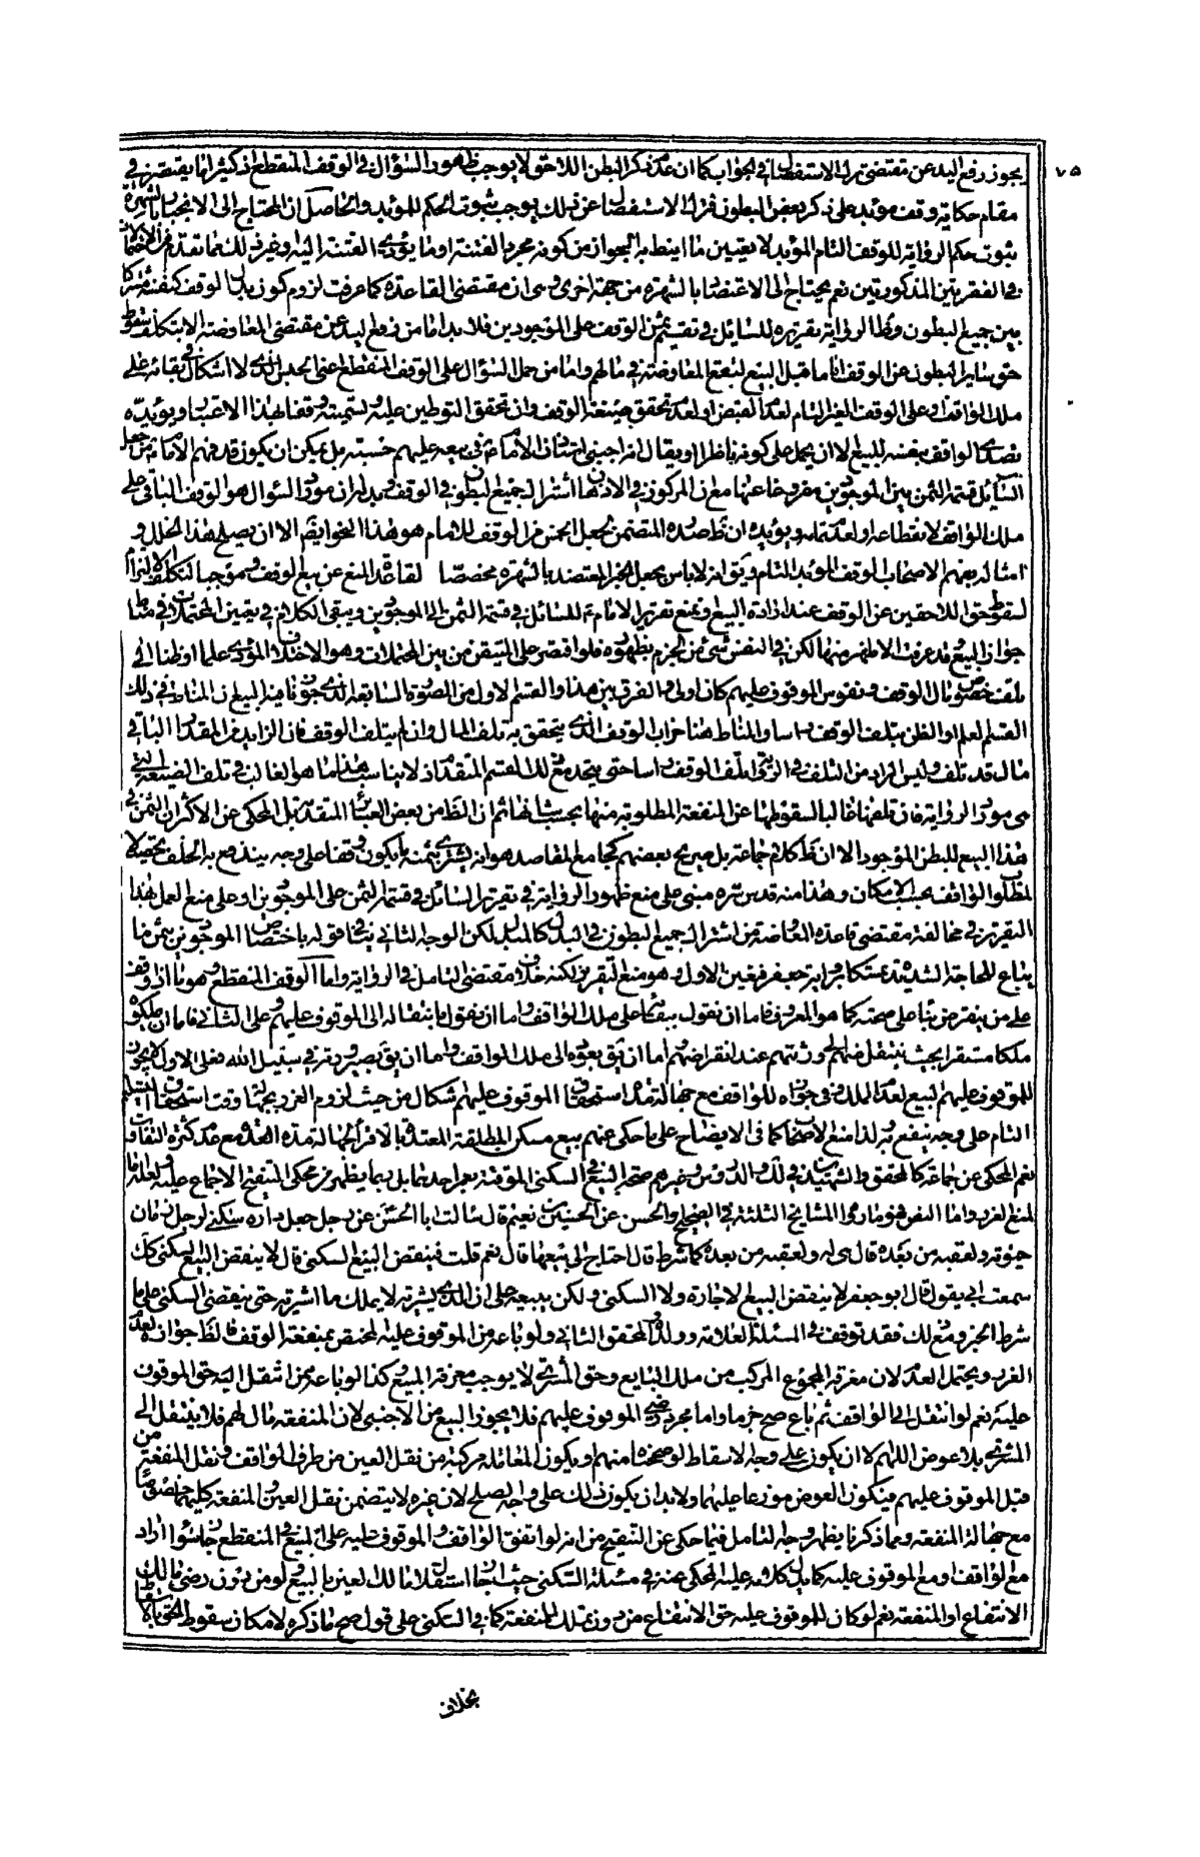 يجوز رفع اليد عن مقتضى ترك الاستفصال في الجواب كما ان عدم ذكر البطن اللاحق لا يوجب ظهور السؤال في الوقف المنقطع اذ كثيرا ما يقتصر في
مقام حكاية وقف مؤبد على ذكر بعض البطون فترك الاستفصال عن ذلك يوجب ثبوت الحكم للمؤبد والحاصل ان المحتاج الى الانجبار بالشهرة
ثبوت حكم الرواية للوقف التام المؤبد لا تعيين ما انيط به الجواز من كونه مجرد الفتنة او ما يؤدى الفتنة اليه وغير ذلك مما تقدم من الاحتمالات
في الفقرتين المذكورتين نعم يحتاج الى الاعتضاد بالشهرة من جهة اخرى وهى ان مقتضى القاعدة كما عرفت لزوم كون بدل الوقف كنفسه مشتركا
بين جميع البطون وظ الرواية تقريره للسائل في تقسيم ثمن الوقف على الموجودين فلا بد اما من رفع اليد عن مقتضى المعاوضة الا بتكلف سقوط
حق سائر البطون عن الوقف انا ما قبل البيع لتقع المعاوضة في مالهم واما من حمل السؤال على الوقف المنقطع اعنى الحبس الذي لا اشكال في بقائه على
ملك الواقف او على الوقف الغير التام لعدم القبض او لعدم تحقق صيغة الوقف وان تحقق التوطين عليه وتسميته وقفا بهذا الاعتبار ويؤيده
تصدى الواقف بنفسه للبيع الا ان يحمل على كونه ناظرا او يقال انه اجنبى استاذن الامام ع في بيعه عليهم حسبة بل يمكن ان يكون قد فهم الامام ع من جعل
السائل قسمة الثمن بين الموجودين مفروغا عنها مع ان المركوز في الاذهان اشتراك جميع البطون في الوقف وبدله ان مورد السؤال هو الوقف الباقى على
ملك الواقف لانقطاعه او لعدم تمامه ويؤيده ان ظ صدره المتضمن لجعل الخمس من الوقف للامام هو هذا النحو ايضا الا ان يصلح هذا الخلل و
امثاله بفهم الاصحاب الوقف المؤبد التام ويق انه لا باس بجعل الخبر المعتضد بالشهرة مخصصا لقاعدة المنع عن بيع الوقف وموجبا لتكلف الالتزام
لسقوط حق اللاحقين عن الوقف عند ارادة البيع او نمنع تقرير الامام ع للسائل في قسمة الثمن الى الموجودين ويبقى الكلام في تعيين المحتملات في مناط
جواز البيع وقد عرفت الاظهر منها لكن في النفس شئ من الجزم بظهوره فلو اقتصر على المتيقن من بين المحتملات وهو الاختلاف المؤدى علما او ظنا الى
تلف خصوص مال الوقف ونفوس الموقوف عليهم كان اولى والفرق بين هذا والقسم الاول من الصورة السابعة الذي جوزنا فيه البيع ان المناط في ذلك
القسم العلم او الظن بتلف الوقف راسا والمناط هنا خراب الوقف الذي يتحقق به تلف المال وان لم يتلف الوقف فان الزايد من المقدار الباقى
مال قد تلف وليس المراد من التلف في الرواية تلف الوقف راسا حتى يتحد مع ذلك القسم المتقدم اذ لا يناسب هذا ما هو الغالب في تلف الضيعة التى
هى مورد الرواية فان تلفها غالبا لسقوطها عن المنفعة المطلوبة منها بحسب شانها ثم ان الظ من بعض العبائر المتقدمة بل المحكى عن الاكثر ان الثمن في
هذا البيع للبطن الموجود الا ان ظ كلام جماعة بل صريح بعضهم كجامع المقاصد هو انه يشترى بثمنه ما يكون وقفا على وجه يندفع به الخلف تحصيلا
لمطلوب الواقف بحسب الامكان وهذا منه قدس سره مبنى على منع ظهور الرواية في تقرير السائل في قسمة الثمن على الموجودين او على منع العمل بهذا
التقرير في مخالفة مقتضى قاعدة المعاوضة من اشتراك جميع البطون في البدل كالمبدل لكن الوجه الثانى ينافى قوله باختصاص الموجودين بثمن ما
يباع للحاجة الشديدة تمسكا برواية جعفر فتعين الاول وهو منع التقرير لكنه خلاف مقتضى التامل في الرواية واما الوقف المنقطع وهو ما اذا وقف
على من ينقرض بناء على صحته كما هو المعروف فاما ان نقول ببقائه على ملك الواقف واما ان نقول بانتقاله الى الموقوف عليهم وعلى الثانى فاما ان يملكوه
ملكا مستقرا بحيث ينتقل منهم الى ورثتهم عند انقراضهم واما ان يق بعوده الى ملك الواقف واما ان يق بصيرورته في سبيل الله فعلى الاول لا يجوز
للموقوف عليهم البيع لعدم الملك وفى جوازه للواقف مع جهالة مدة استحقاق الموقوف عليهم اشكال من حيث لزوم الغرر بجهالة وقت استحقاق التسليم
التام على وجه ينتفع به ولذا منع الاصحاب كما فى الايضاح على ما حكى عنهم بيع مسكن المطلقة المعتدة بالاقراء لجهالة مدة العدة مع عدم كثرة التفاوت
نعم المحكى عن جماعة كالمحقق والشهيدين في لك والدروس وغيرهم صحة البيع في السكنى الموقتة بعمر احدهما بل ربما يظهر من محكى التنقيح الاجماع عليه ولعله اما
لمنع الغرر واما النص وهو ما رواه المشايخ الثلثة في الصحيح او الحسن عن الحسين بن نعيم قال سالت ابا الحسن ع عن رجل جعل داره سكنى لرجل زمان
حيوته ولعقبه من بعده قال هى له ولعقبه من بعده كما شرط قلت فان احتاج الى بيعها قال نعم قلت فينقض البيع السكنى قال لا ينقض البيع السكنى كك
سمعت ابى يقول قال ابو جعفر ع لا ينقض البيع الاجارة ولا السكنى ولكن يبيعه على ان الذي يشتريه لا يملك ما اشتريه حتى ينقضى السكنى على ما
شرط الخبر ومع ذلك فقد توقف في المسئلة العلامة وولده والمحقق الثانى ولو باعه من الموقوف عليه المختص بمنفعة الوقف فالظ جوازه لعدم
الغرر ويحتمل العدم لان معرفة المجموع المركب من ملك البايع وحق المشترى لا يوجب معرفة المبيع وكذا لو باعه ممن انتقل اليه حق الموقوف
عليه نعم لو انتقل الى الواقف ثم باع صح جزما واما مجرد رضى الموقوف عليهم فلا يجوز البيع من الاجنبى لان المنفعة مال لهم فلا ينتقل الى
المشترى بلا عوض اللهم الا ان يكون على وجه الاسقاط لو صححناه منهم او يكون المعاملة مركبة من نقل العين من طرف الواقف ونقل المنفعة من
قبل الموقوف عليهم فيكون العوض موزعا عليهما ولا بد ان يكون ذلك على وجه الصلح لان غيره لا يتضمن نقل العين والمنفعة كليهما خصوصا
مع جهالة المنفعة ومما ذكرنا يظهر وجه التامل فيما حكى عن التنقيح من انه لو اتفق الواقف والموقوف عليه على البيع في المنقطع جاز سواء اراد
مع الواقف او مع الموقوف عليه كما يدل كلامه عليه المحكى عنه في مسئلة السكنى حيث اجاز استقلال مالك العين بالبيع ولو من دون رضى مالك
الانتفاع او المنفعة نعم لو كان للموقوف عليه حق الانتفاع من دون تملك للمنفعة كما في السكنى على قول صح ما ذكره لامكان سقوط الحق بالاسقاط
بخلاف